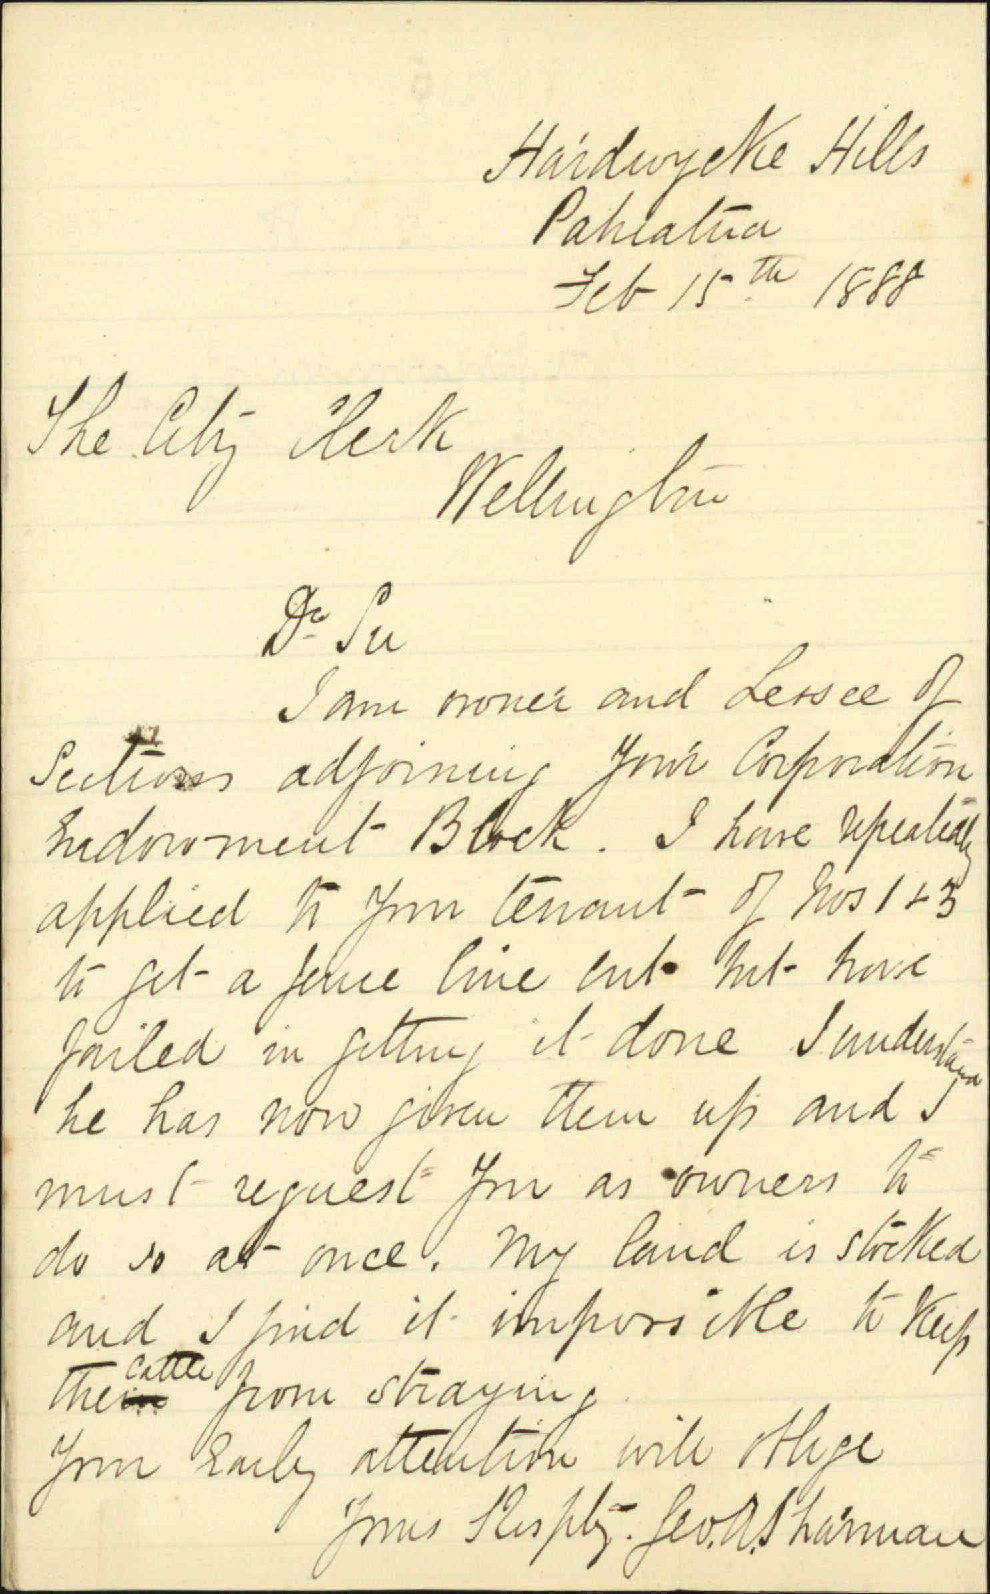 Hardwycke Hills
Pahiatua
Feb 15th 1888
The City Clerk
Wellington
Dr Sir
I am owner and Lessee of
Sections adjoining Your Corporation
Endowment Block. I have repeatedly
applied to Your tenant of Nos 1 & 3
to get a fence line cut but have
failed in getting it done I understand
he has now given them up and I
must request You as owners to
do so at once. My land is stocked
and I find it impossible to Keep
the cattle from straying
Your Early attention will oblige
Yours Respfly. Geo. A. Sharman